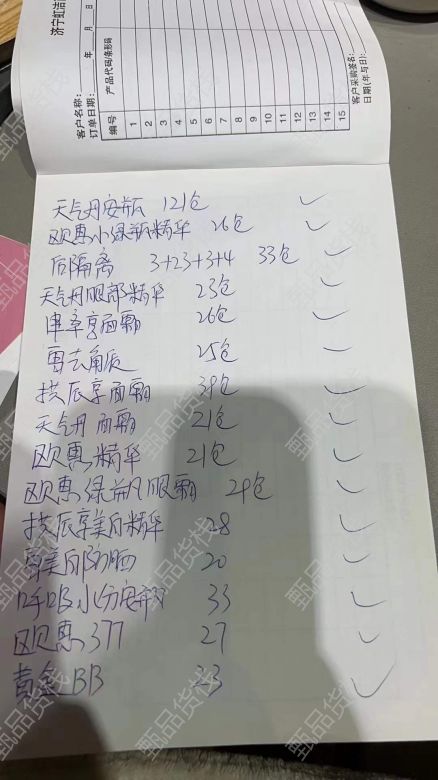 济宁虹洁
客户名称:
订单日期: 年 月 日
编号 产品代码/条形码
1
2
3
4
5
6
7
8
9
10
11
12
13
14
15
客户采购签名:
日期(年与日):
天气丹安瓶 121仓 ✓
欧惠小绿瓶精华 26仓 ✓
后隔离 3+23+3+4 33仓 ✓
天气丹眼部精华 23仓 ✓
津率享面霜 26仓 ✓
雪去角质 25仓 ✓
拱辰享面霜 39仓 ✓
天气丹面霜 21仓 ✓
欧惠精华 21仓 ✓
欧惠绿 眼霜 29仓 ✓
拱辰享美白精华 28 ✓
雪美白防晒 20 ✓
呼吸水分安 33 ✓
欧惠377 27 ✓
黄金BB 23 ✓
甄品货栈